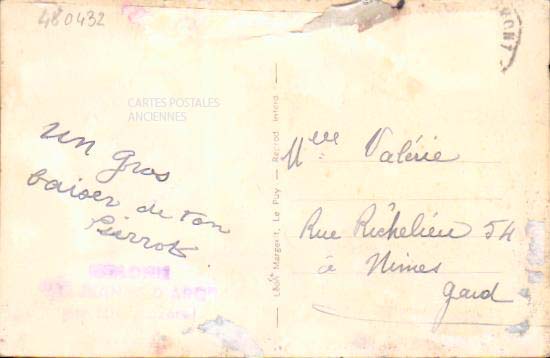 480432
CARTES POSTALES
ANCIENNES
un gros
baiser de ton
Pierrot.
Margerit, Le Puy — Reprod. interd.
Mlle Valérie
Rue Richelieu 54
à Nimes
Gard